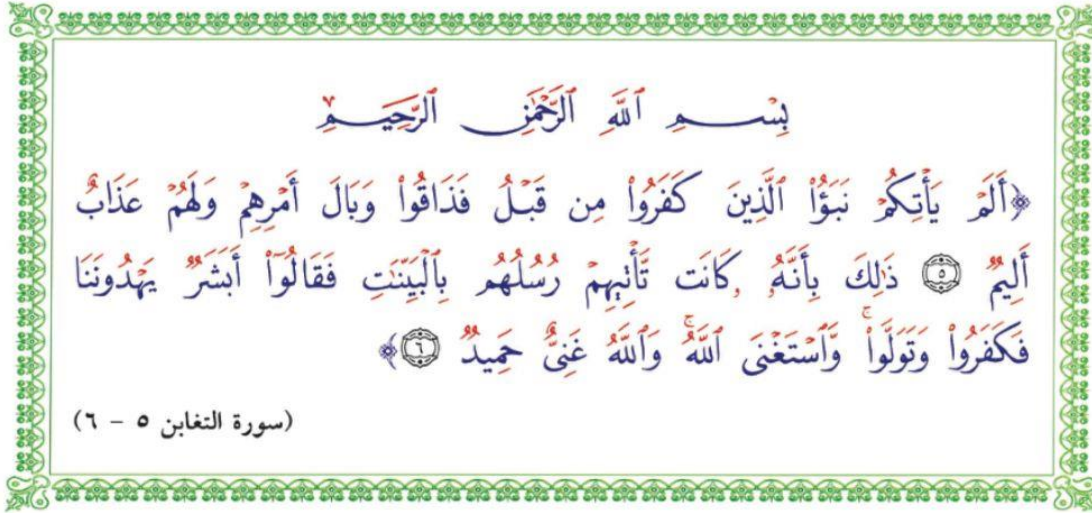 بِسْمِ ٱللَّهِ ٱلرَّحْمَٰنِ ٱلرَّحِيمِ
﴿أَلَمْ يَأْتِكُمْ نَبَؤُا۟ ٱلَّذِينَ كَفَرُوا۟ مِن قَبْلُ فَذَاقُوا۟ وَبَالَ أَمْرِهِمْ وَلَهُمْ عَذَابٌ
أَلِيمٌ ٥ ذَٰلِكَ بِأَنَّهُۥ كَانَت تَّأْتِيهِمْ رُسُلُهُم بِٱلْبَيِّنَٰتِ فَقَالُوٓا۟ أَبَشَرٌ يَهْدُونَنَا
فَكَفَرُوا۟ وَتَوَلَّوا۟ۚ وَّٱسْتَغْنَى ٱللَّهُۚ وَٱللَّهُ غَنِىٌّ حَمِيدٌ ٦﴾
(سورة التغابن ٥ - ٦)